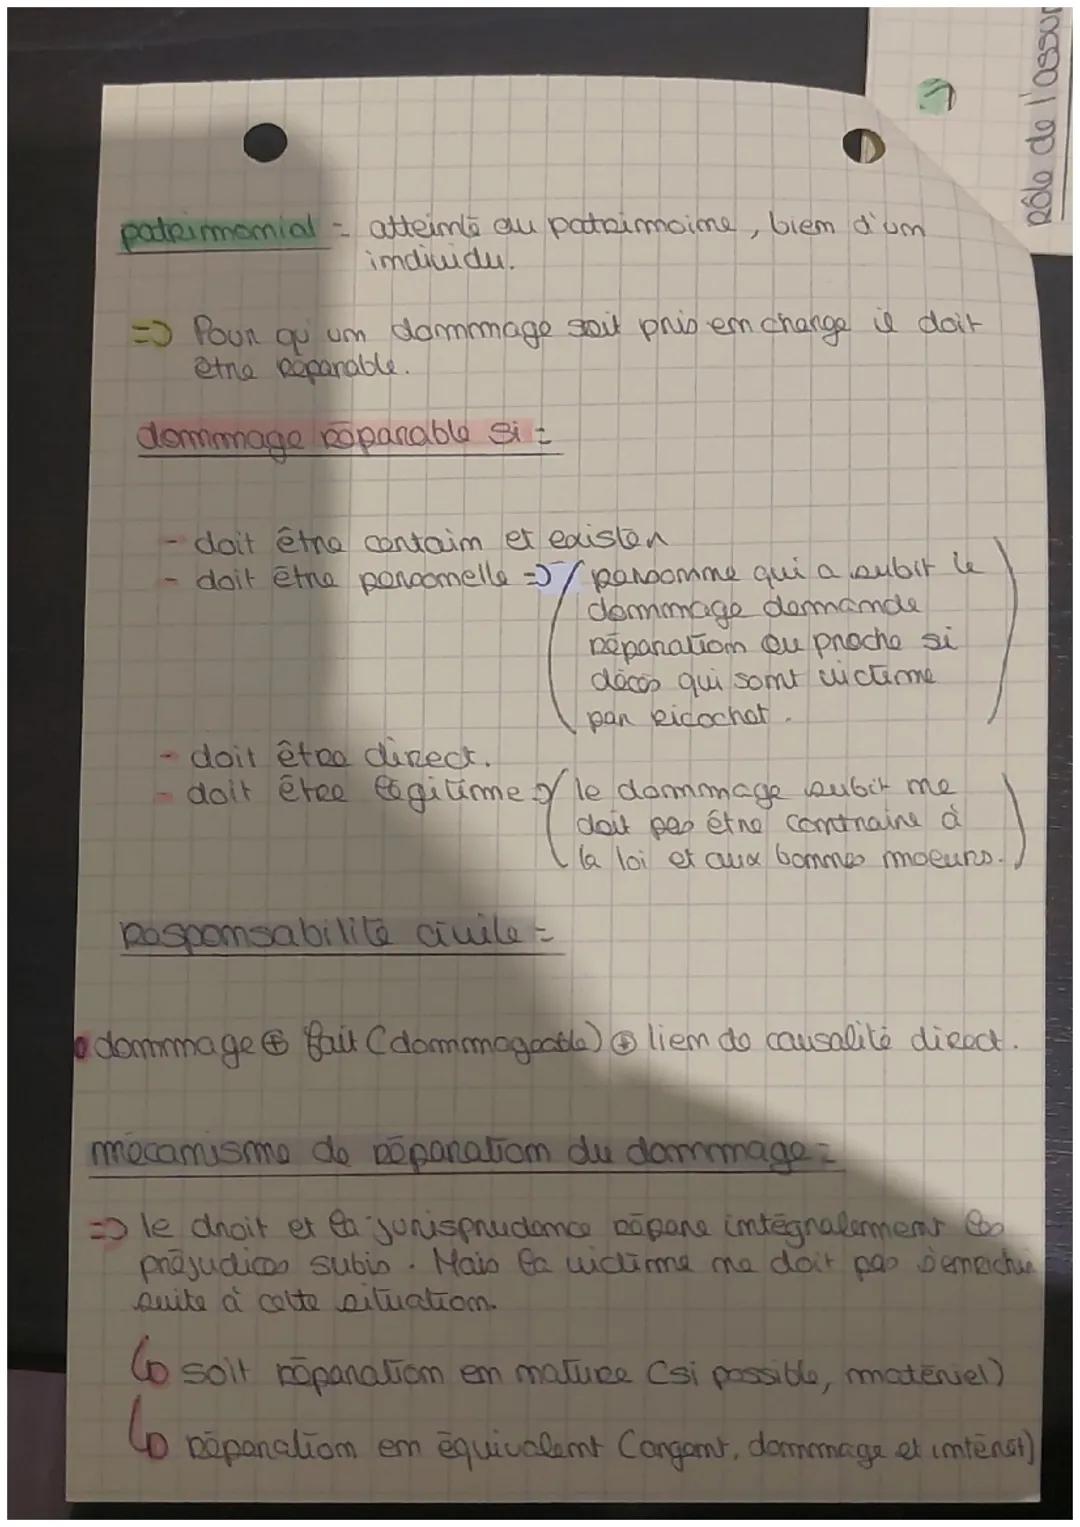 Rôle de l'assur
patrimonial = atteinte au patrimoine, bien d'un
individu.
=> Pour qu'un dommage soit pris en charge il doit
être réparable.
dommage réparable si =
- doit être certain et exister
- doit être personnelle => (personne qui a subit le
dommage demande
réparation ou proche si
décès qui sont victime
par ricochet.)
- doit être direct.
- doit être légitime => (le dommage subit ne
doit pas être contraire à
la loi et aux bonnes moeurs.)
responsabilité civile =
• dommage ⊕ fait (dommageable) ⊕ lien de causalité direct.
mécanisme de réparation du dommage =
=> le droit et la jurisprudence répare intégralement les
préjudices subis. Mais la victime ne doit pas s'enrichir
suite à cette situation.
↳ soit réparation en nature (si possible, matériel)
↳ réparation en équivalent (argent, dommage et intérêt)